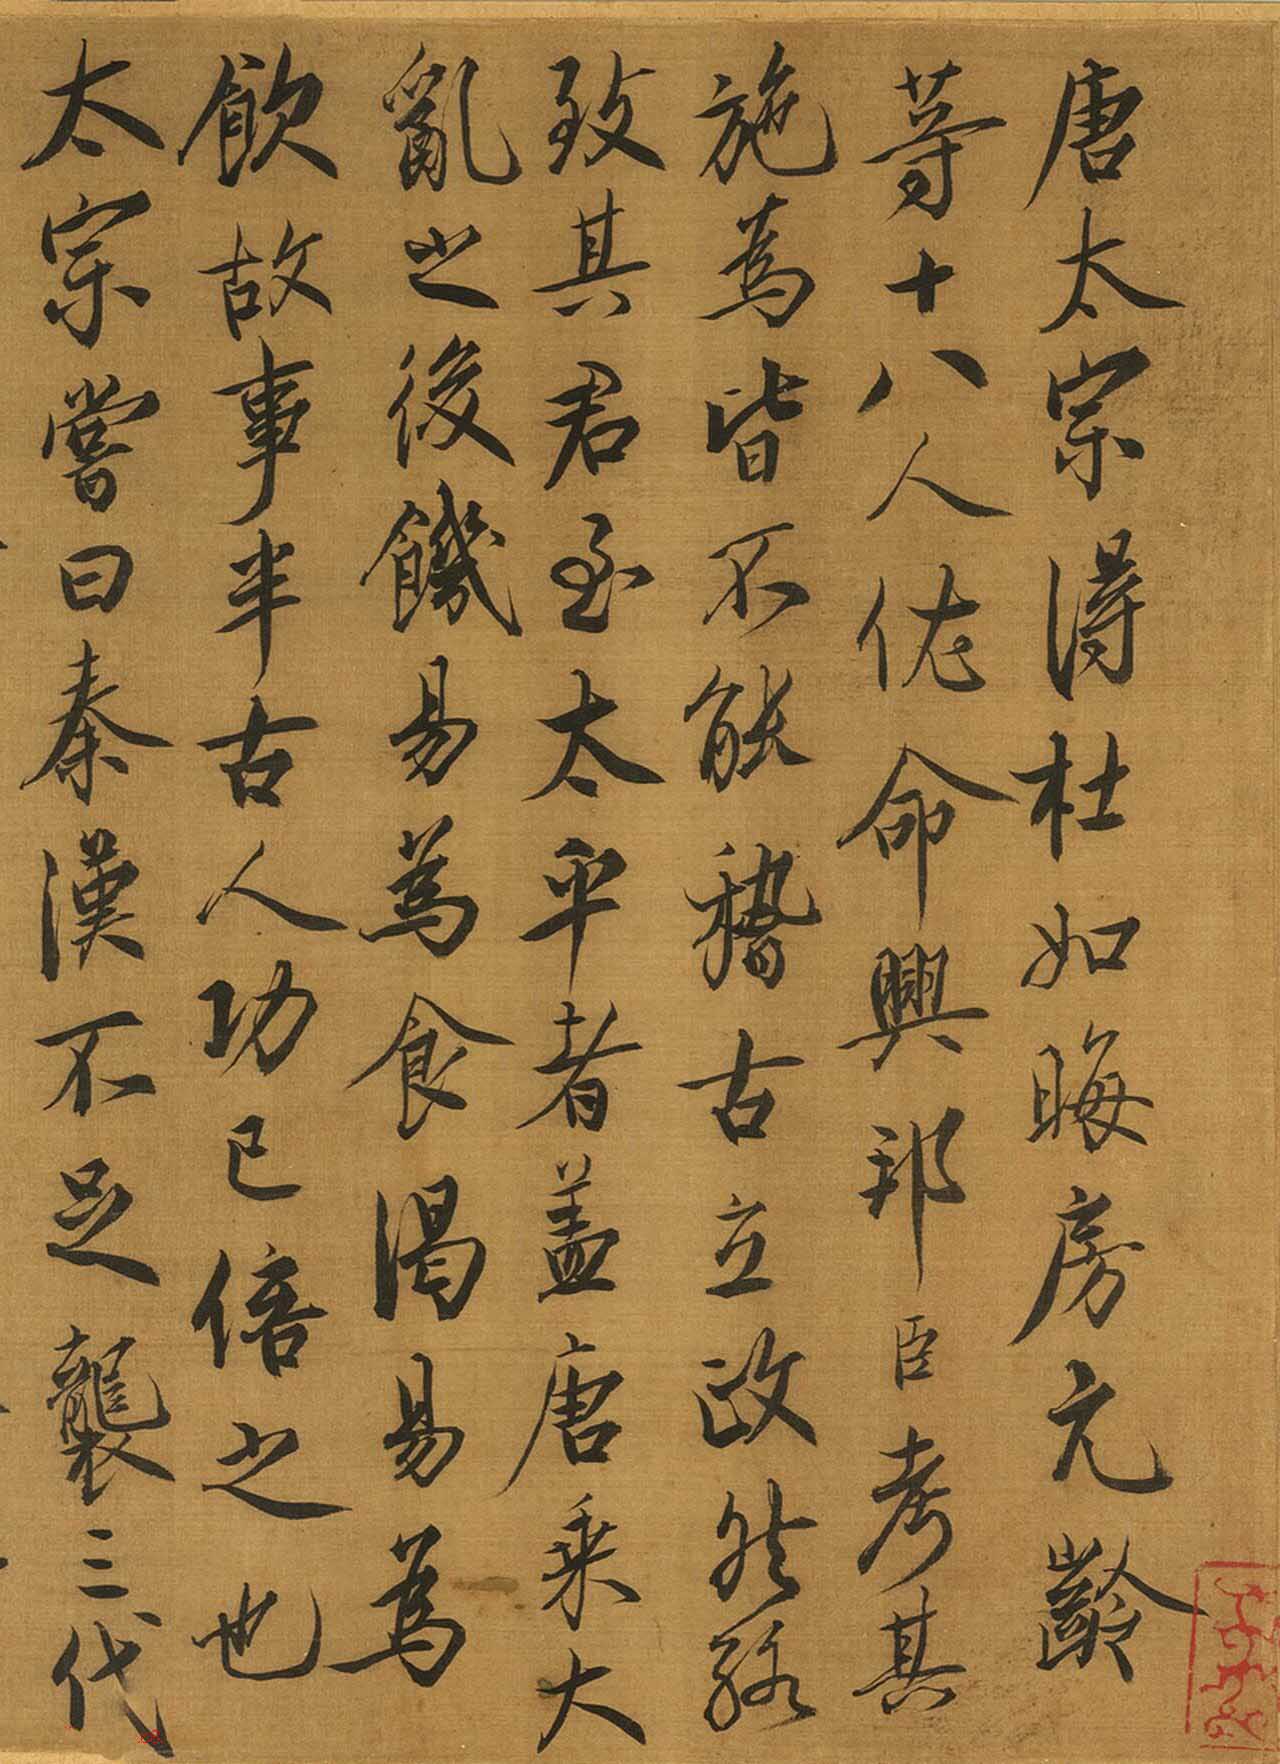 唐太宗得杜如晦房元齡
等十八人佐命興邦臣考其
施為皆不能稽古立政然終
致其君至太平者蓋唐乗大
亂之後饑易為食渴易為
飲故事半古人功已倍之也
太宗嘗曰秦漢不足襲三代